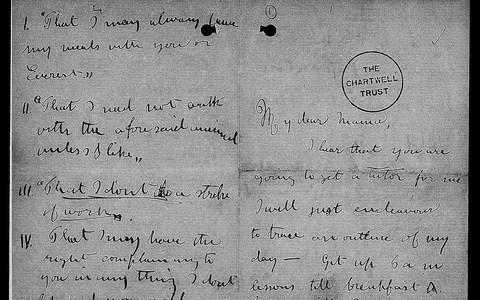 I. "That I may always have
my meals with you or
Everest"
II. "That I need not walk
with the aforesaid animal
unless I like"
III. "That I dont do a stroke
of work".
IV. That I may have the
right complaining to
you in any thing I dont
1
THE
CHARTWELL
TRUST
My dear Mama,
I hear that you are
going to get a tutor for me
I will just endeavour
to trace an outline of my
day — Get up 6 a m
lessons till breakfast